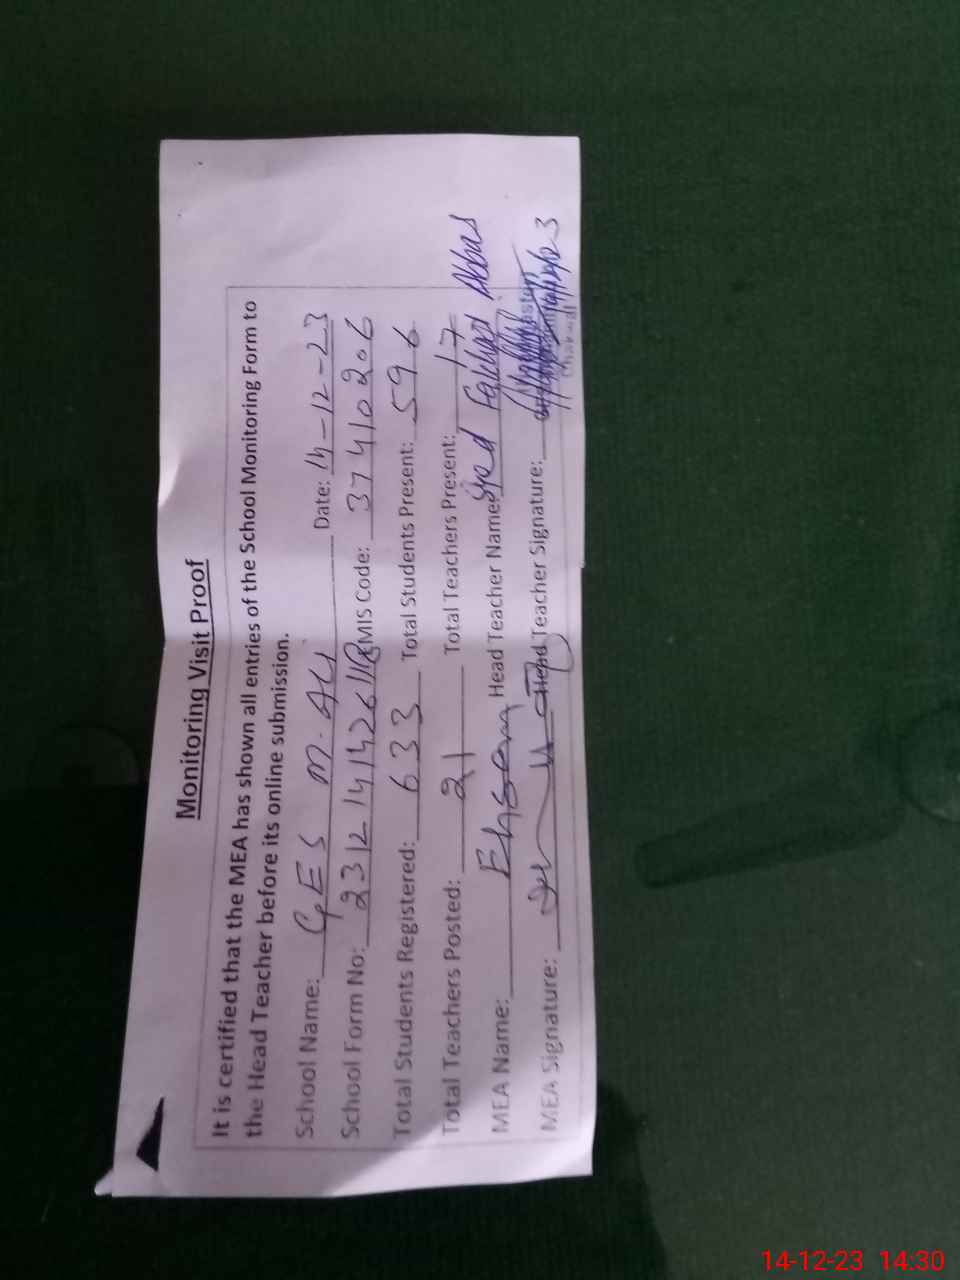 Monitoring Visit Proof
It is certified that the MEA has shown all entries of the School Monitoring Form to
the Head Teacher before its online submission.
School Name: GES M. Ali Date: 14-12-23
School Form No: 231214142611 EMIS Code: 37410206
Total Students Registered: 633 Total Students Present: 596
Total Teachers Posted: 21 Total Teachers Present: 17
MEA Name: Head Teacher Name: Syed Abbas
MEA Signature: Head Teacher Signature:
Chakwal
14-12-23 14:30